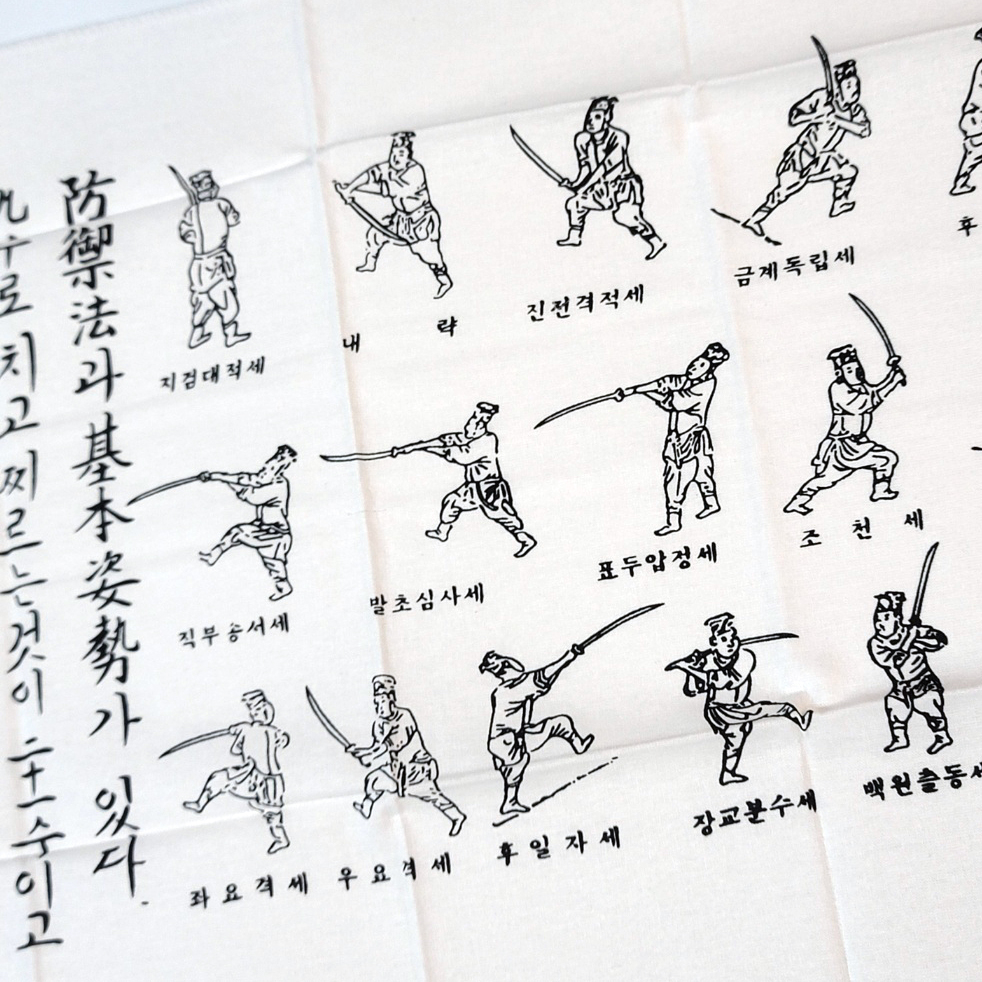 치고 찌르는것이 二十一수이고
防御法과 基本姿勢가 있다.
지검대적세
내 략
진전격적세
금계독립세
후
직부송서세
발초심사세
표두압정세
조 천 세
좌요격세
우요격세
후일자세
장교분수세
백원출동세